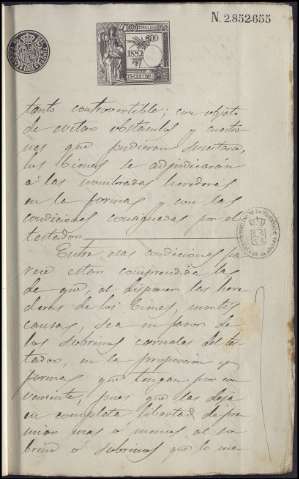 N. 2.852.655
1882
tanto controvertible; con objeto
de evitar obstáculos y cuestio
nes que pudieran suscitarse,
los bienes se adjudicarán
á las nombradas herederas
en la forma y con las
condiciones consignadas por el
testador
Entre esas condiciones pa
rece están comprendidas las
de que, al disponer las here
deras de los bienes, mortis
causa, sea in favor de
los sobrinos carnales del tes
tador, en la proporción y
forma que tengan por con
veniente, pues que las deja
en completa libertad de pre
miar mas ó menos al so
brino ó sobrinas que lo me